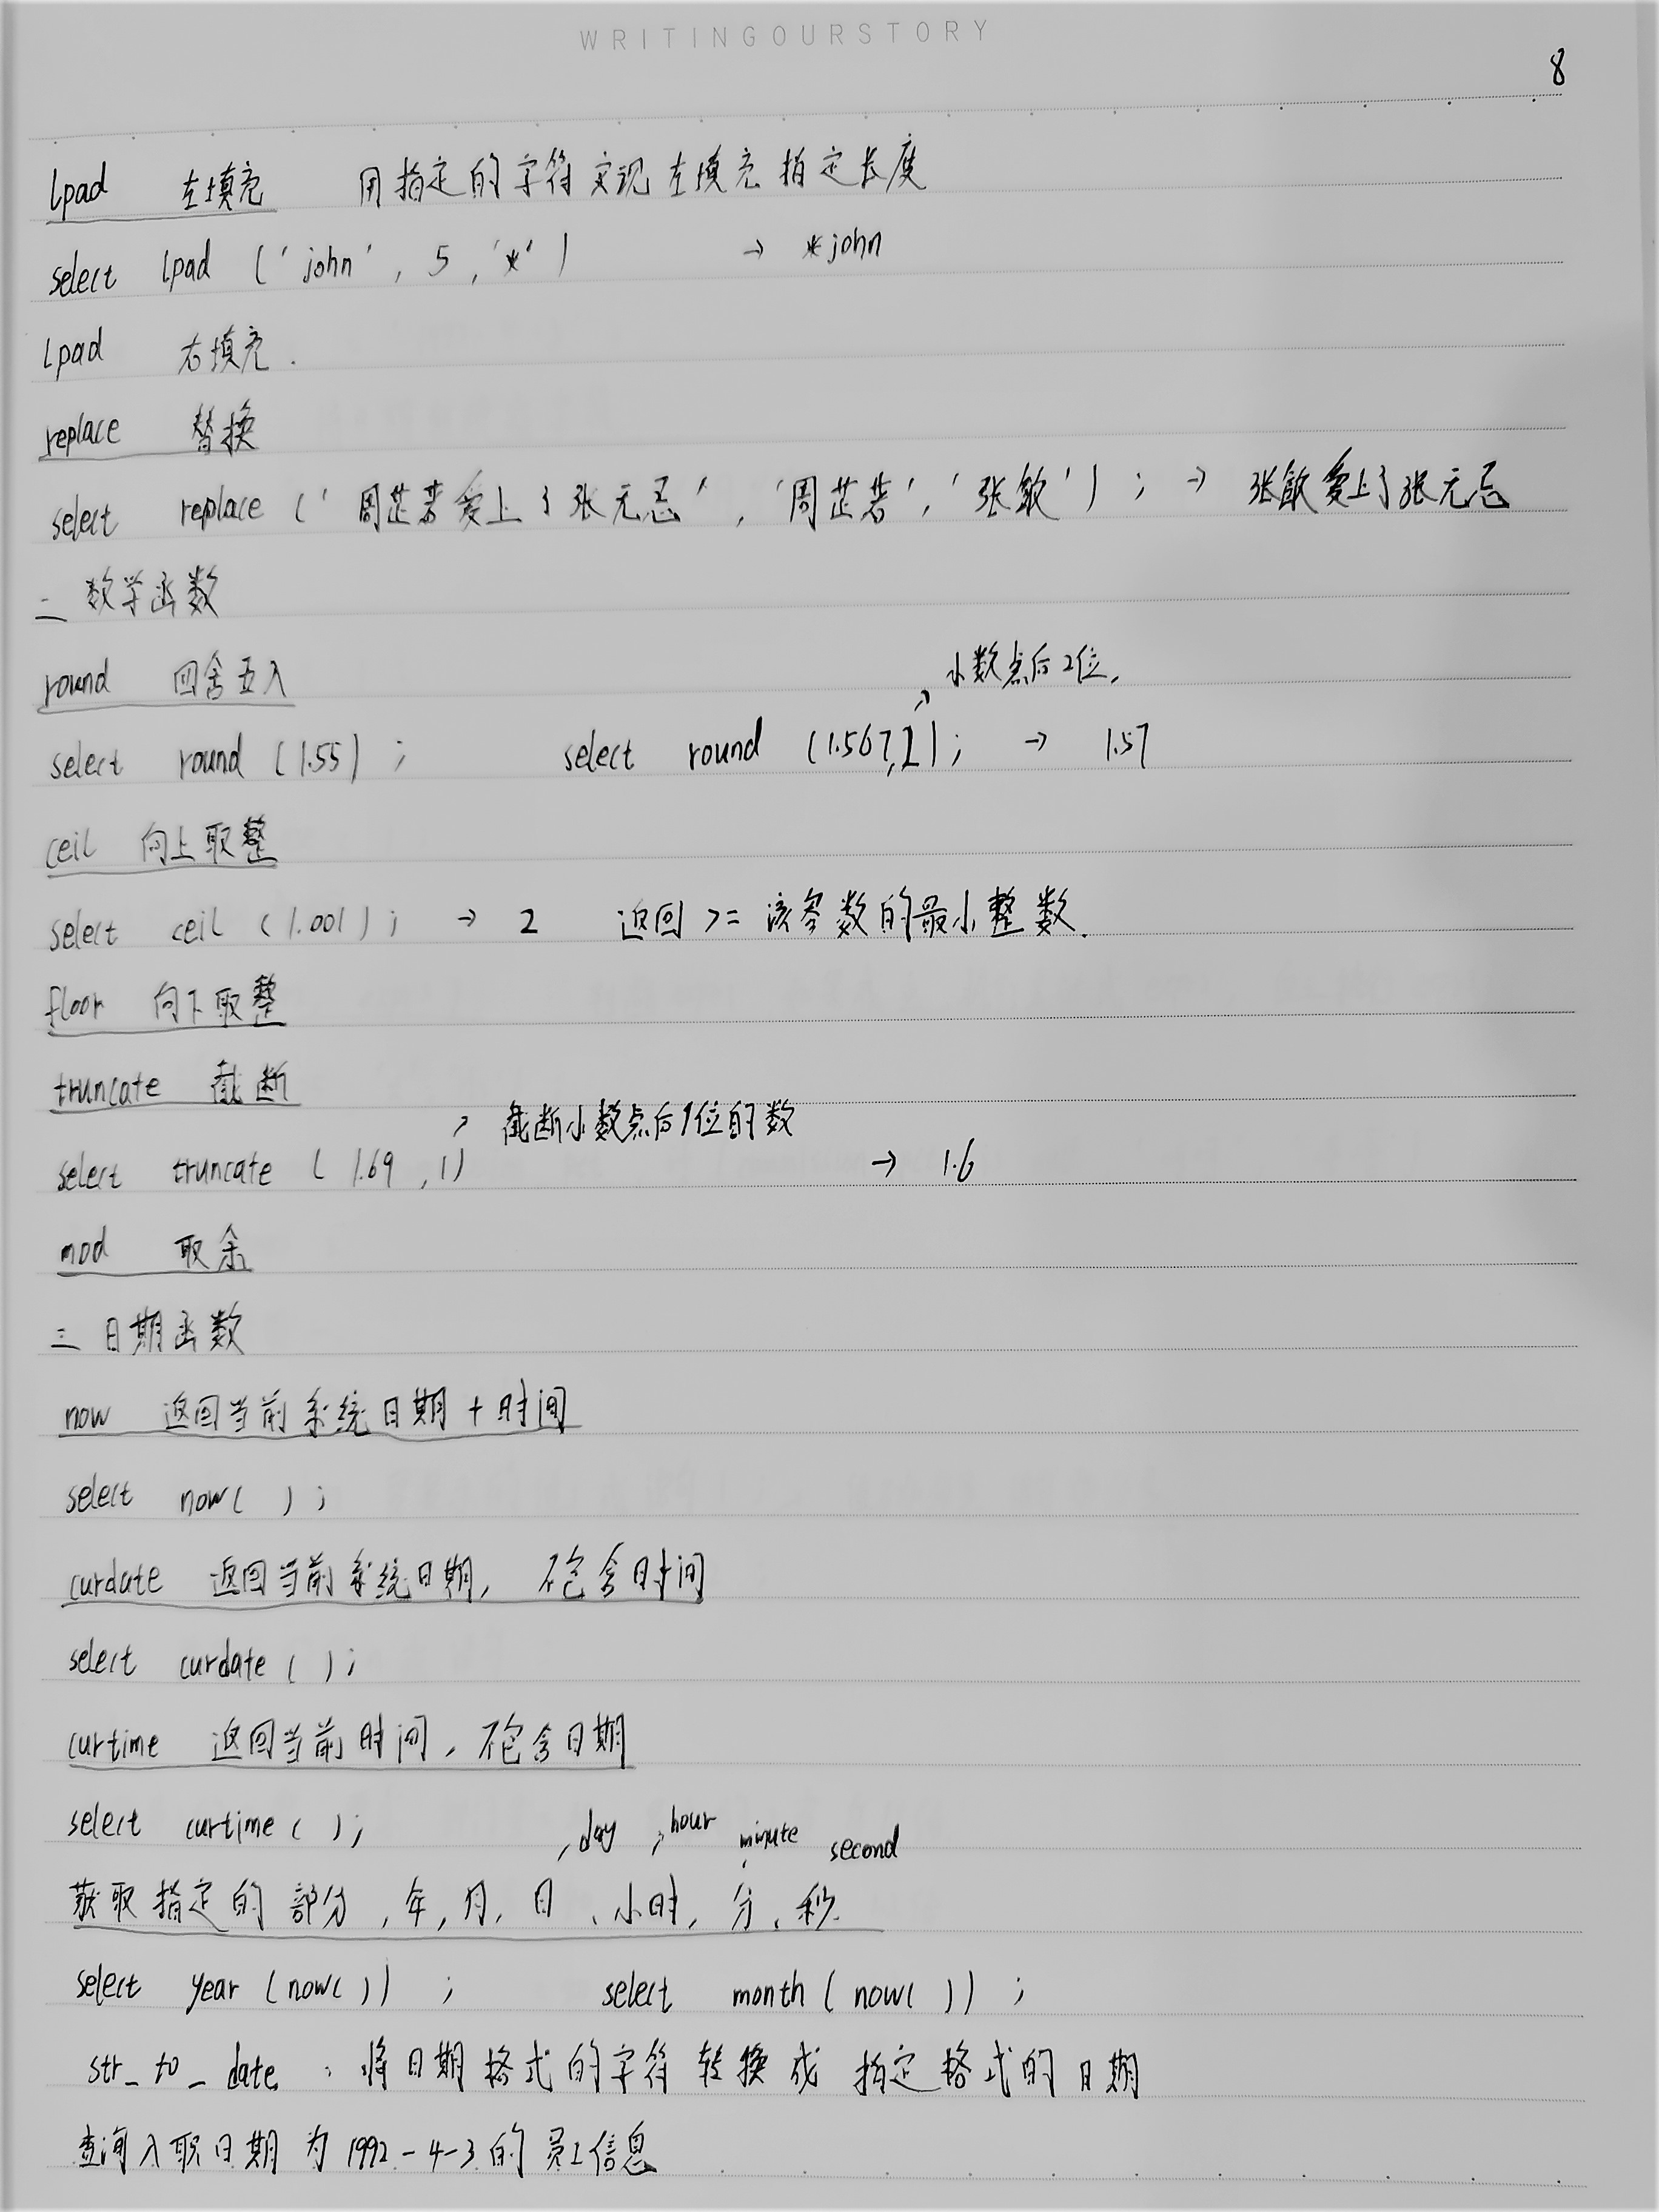 WRITINGOURSTORY
8
lpad 左填充 用指定的字符实现左填充指定长度
select lpad ('john', 5, '*') → *john
lpad 右填充.
replace 替换
select replace ('周芷若爱上了张无忌', '周芷若', '张敏'); → 张敏爱上了张无忌
二 数学函数
round 四舍五入
小数点后2位.
select round (1.55); select round (1.567,2); → 1.57
ceil 向上取整
select ceil (1.001); → 2 返回 >= 该参数的最小整数.
floor 向下取整
truncate 截断
截断小数点后1位的数
select truncate (1.69,1) → 1.6
mod 取余
三 日期函数
now 返回当前系统日期+时间
select now( );
curdate 返回当前系统日期, 不包含时间
select curdate ( );
curtime 返回当前时间, 不包含日期
select curtime ( );
day hour minute second
获取指定的部分, 年, 月, 日、小时, 分、秒
select year (now( )); select month (now( ));
str_to_date : 将日期格式的字符转换成 指定格式的日期
查询入职日期为1992-4-3的员工信息